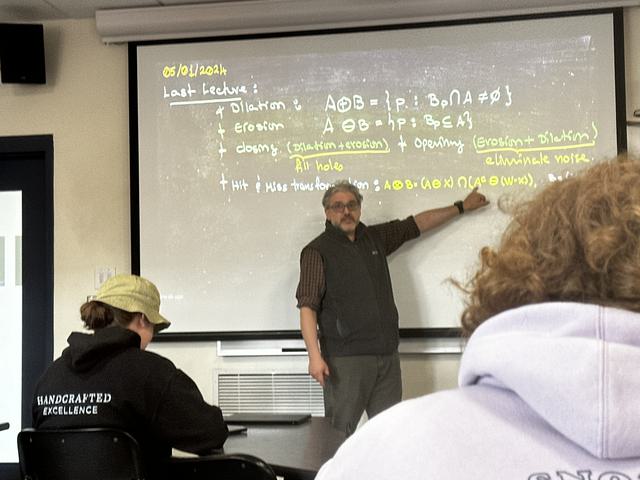 05/01/2024
Last Lecture:
+ Dilation: A⊕B = {p : Bp∩A ≠ ∅}
+ Erosion A ⊖B = {p : Bp⊆A}
+ closing (Dilation+erosion) + Opening (Erosion + Dilation)
fill holes eliminate noise.
+ Hit & Miss transformation : A⊗B=(A⊖X) ∩(Aᶜ⊖(W-X)),
HANDCRAFTED
EXCELLENCE